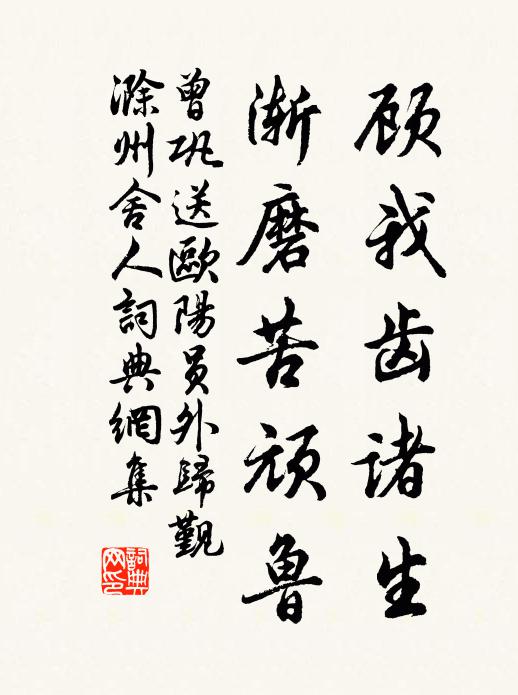 顾我齿诸生
渐磨苦顽鲁
曾巩送歐陽员外歸觐
滁州舍人詞典網集
詞典网印